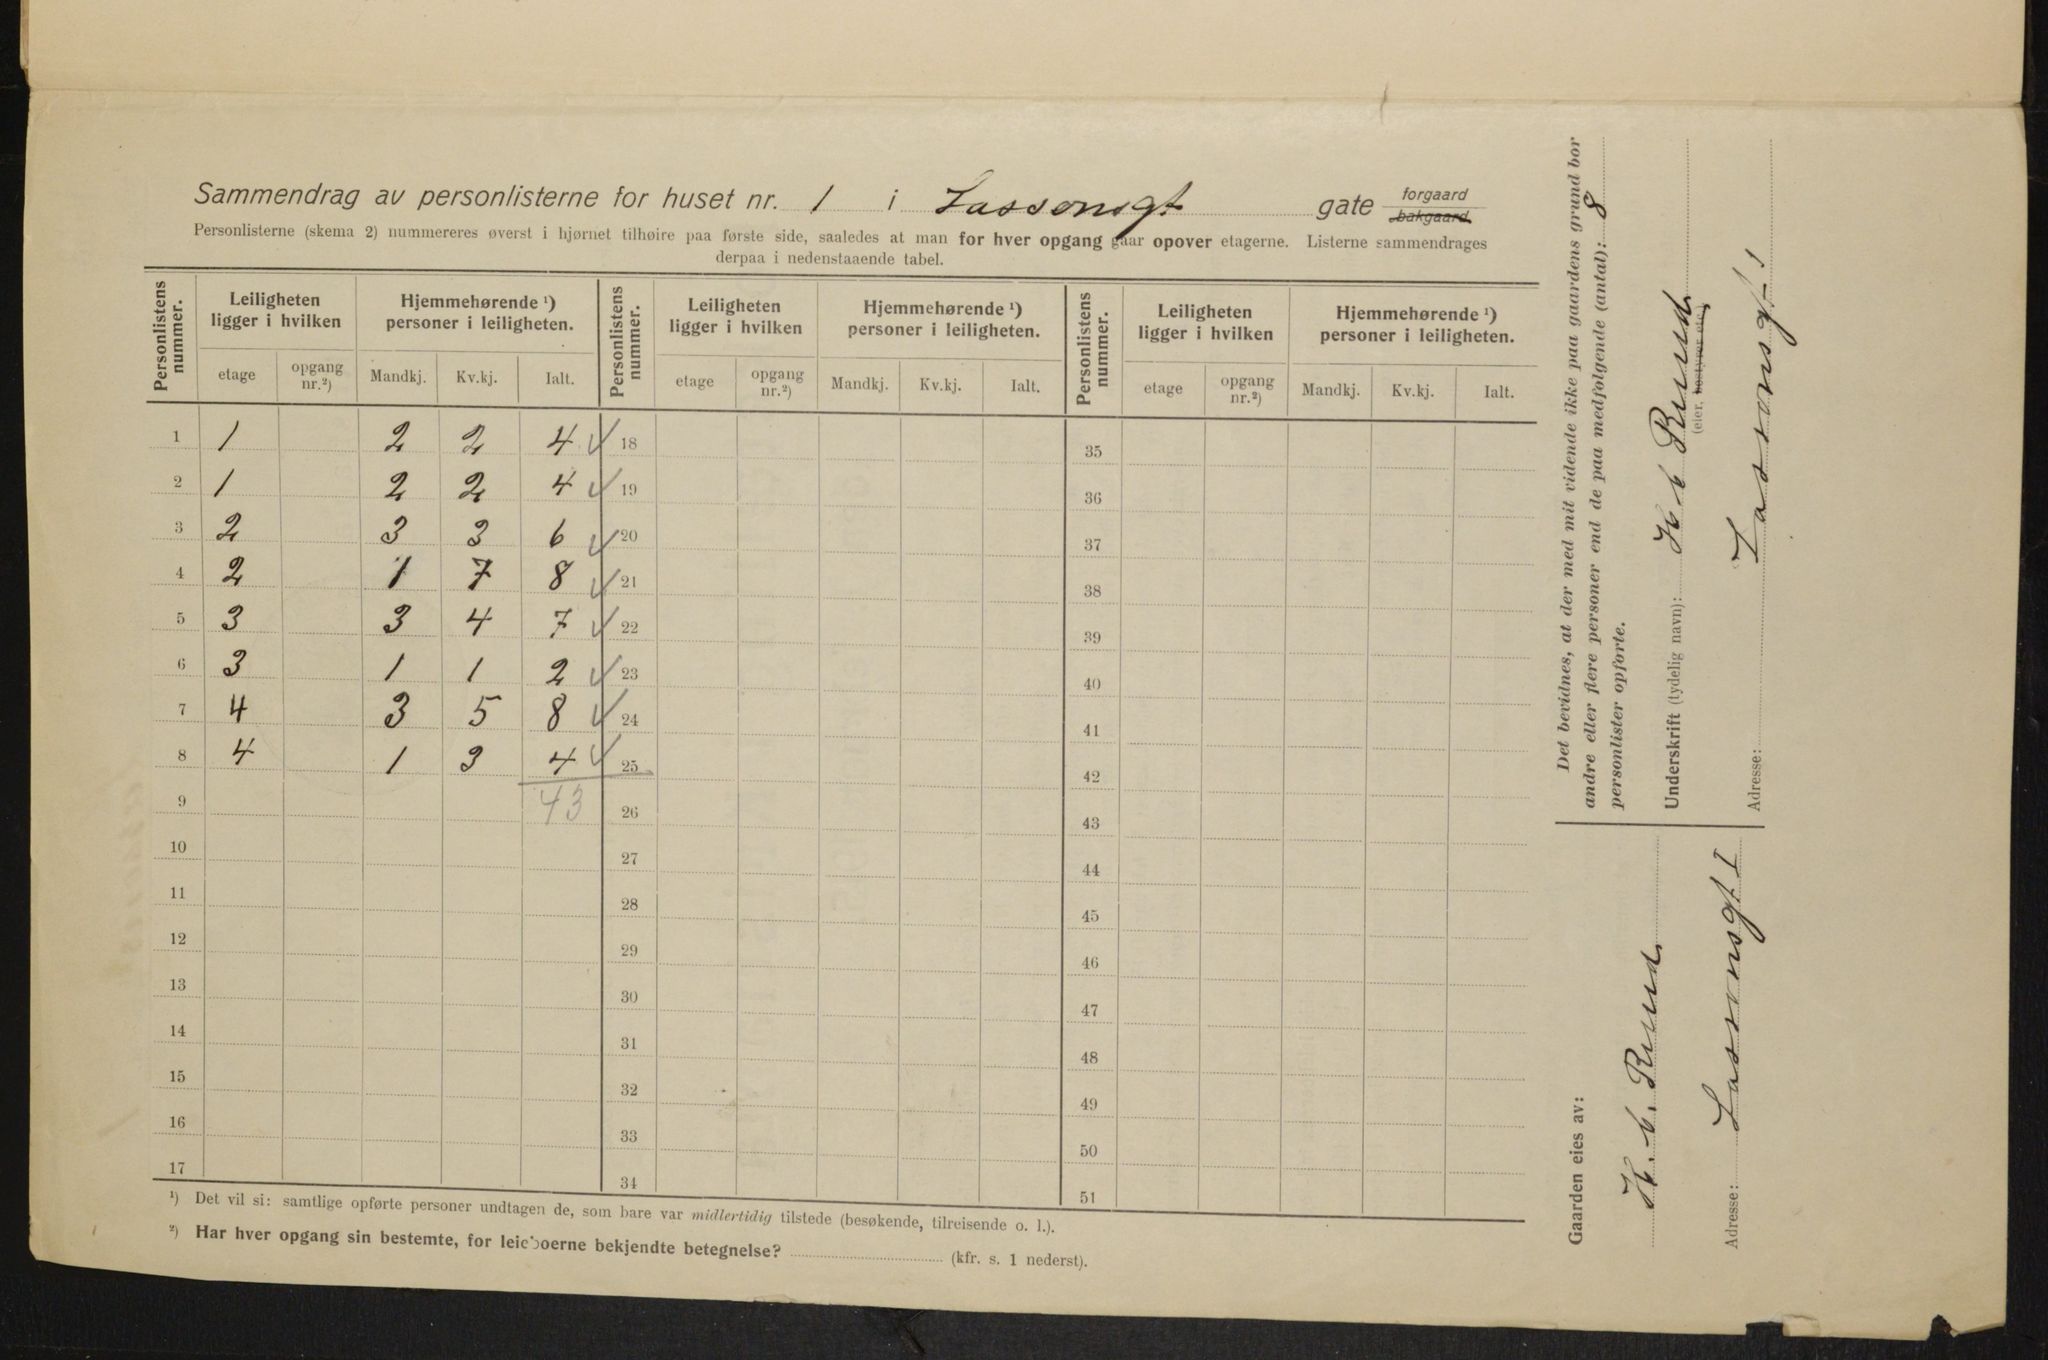 Sammendrag av personlisterne for huset nr. 1 i Lassonsgt gate forgaard bakgaard.
Personlisterne (skema 2) nummereres øverst i hjørnet tilhøire paa første side, saaledes at man for hver opgang gaar opover etagerne. Listerne sammendrages
derpaa i nedenstaaende tabel.
Personlistens nummer. Leiligheten ligger i hvilken Hjemmehørende ¹) personer i leiligheten. Personlistens nummer. Leiligheten ligger i hvilken Hjemmehørende ¹) personer i leiligheten. Personlistens nummer. Leiligheten ligger i hvilken Hjemmehørende ¹) personer i leiligheten.
etage opgang nr.²) Mandkj. Kv.kj. Ialt. etage opgang nr.²) Mandkj. Kv.kj. Ialt. etage opgang nr.²) Mandkj. Kv.kj. Ialt.
1 1 2 2 4 ✓ 18 35
2 1 2 2 4 ✓ 19 36
3 2 3 3 6 ✓ 20 37
4 2 1 7 8 ✓ 21 38
5 3 3 4 7 ✓ 22 39
6 3 1 1 2 ✓ 23 40
7 4 3 5 8 ✓ 24 41
8 4 1 3 4 ✓ 25 42
9 43 26 43
10 27 44
11 28 45
12 29 46
13 30 47
14 31 48
15 32 49
16 33 50
17 34 51
¹) Det vil si: samtlige opførte personer undtagen de, som bare var midlertidig tilstede (besøkende, tilreisende o. l.).
²) Har hver opgang sin bestemte, for leieboerne bekjendte betegnelse? (kfr. s. 1 nederst).
Det bevidnes, at der med mit vidende ikke paa gaardens grund bor
andre eller flere personer end de paa medfølgende (antal): 8
personlister opførte.
Underskrift (tydelig navn): H C Ruud
(eier, bestyrer etc.)
Adresse: Lassonsgt 1
Gaarden eies av:
H. C. Ruud
Adresse: Lassonsgt 1